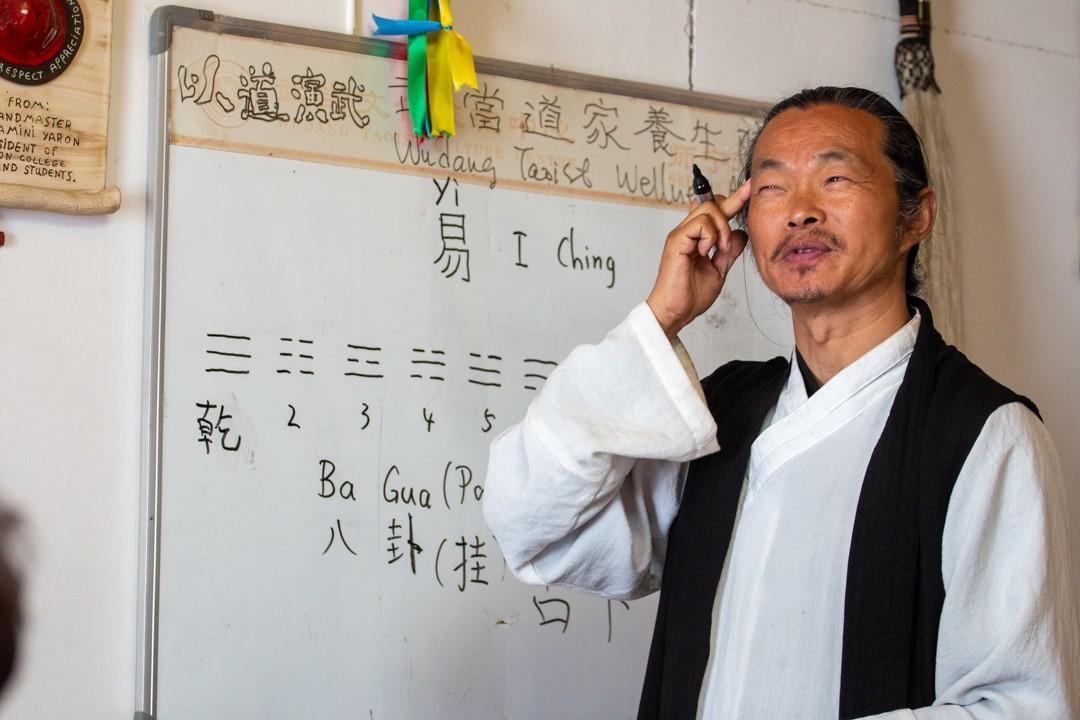 RESPECT APPRECIATION
FROM:
ANDMASTER
AMINI YARON
SIDENT OF
ON COLLEGE
ND STUDENTS.
以道演武
當道家養生
Wudang Taoist Wellne
Yi
易 I Ching
☰ ☷ ☲
乾 2 3 4 5
Ba Gua (Pa
八 卦 (挂